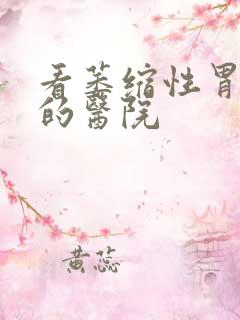 看萎缩性胃
的醫院
黄蕊